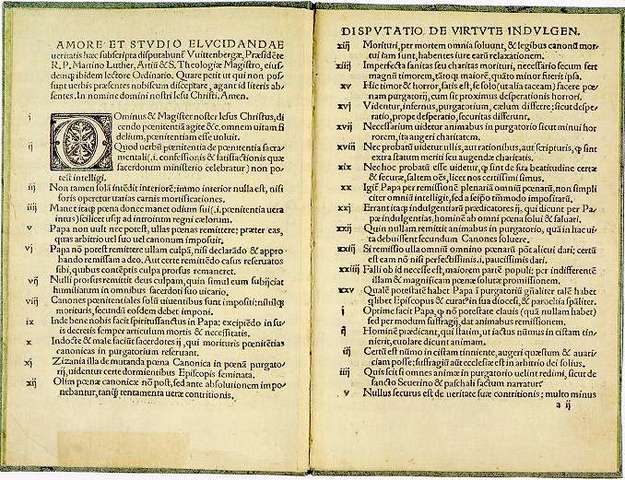 AMORE ET STVDIO ELVCIDANDAE
ueritatis hæc subscripta disputabunť Vuittenbergæ, Præsidẽte
R. P. Martino Luther, Artiũ & S. Theologiæ Magistro, eius-
demq; ibidem lectore Ordinario. Quare petit ut qui non pos-
sunt uerbis præsentes nobiscum disceptare, agant id literis ab-
sentes. In nomine domini nostri Iesu Christi. Amen.
i DOminus & Magister noster Iesus Christus, di-
cendo pœnitentiã agite &c. omnem uitam fi-
delium, pœnitentiam esse uoluit.
ij Quod uerbũ pœnitentia de pœnitentia sacra-
mentali (.i. confessionis & satisfactionis quæ
sacerdotum ministerio celebratur) non po-
test intelligi.
iij Non tamen solã intẽdit interiorẽ: immo interior nulla est, nisi
foris operetur uarias carnis mortificationes.
iiij Manet itaq; pœna donec manet odium sui (.i. pœnitentia uera
intus) scilicet usq; ad introitum regni cælorum.
v Papa non uult nec potest, ullas pœnas remittere: præter eas,
quas arbitrio uel suo uel canonum imposuit.
vj Papa nõ potest remittere ullam culpã, nisi declarãdo & appro-
bando remissam a deo. Aut certe remittẽdo casus reseruatos
sibi, quibus contẽptis culpa prorsus remaneret.
vij Nulli prorsus remittit deus culpam, quin simul eum subijciat
humiliatum in omnibus sacerdoti suo uicario.
viij Canones pœnitentiales solũ uiuentibus sunt impositi: nihilq;
morituris, secundũ eosdem debet imponi.
ix Inde bene nobis facit spiritussanctus in Papa: excipiẽdo in su-
is decretis semper articulum mortis & necessitatis.
x Indocte & male faciũt sacerdotes ij, qui morituris pœnitẽtias
canonicas in purgatorium reseruant.
xj Zizania illa de mutanda pœna Canonica in pœnã purgato-
rij, uidentur certe dormientibus Episcopis seminata.
xij Olim pœnæ canonicæ nõ post, sed ante absolutionem impo-
nebantur, tanq̃ tentamenta ueræ contritionis.
DISPVTATIO DE VIRTVTE INDVLGEN.
xiij Morituri, per mortem omnia soluunt, & legibus canonũ mor-
tui iam sunt, habentes iure earũ relaxationem.
xiiij Imperfecta sanitas seu charitas morituri, necessario secum fert
magnũ timorem, tãtoq; maiorẽ, quãto minor fuerit ipsa.
xv Hic timor & horror, satis est, se solo (ut alia taceam) facere pœ-
nam purgatorij, cum sit proximus desperationis horrori.
xvj Videntur, infernus, purgatorium, cælum differre: sicut despe-
ratio, prope desperatio, securitas differunt.
xvij Necessarium uidetur animabus in purgatorio sicut minui hor-
rorem, ita augeri charitatem.
xviij Nec probatũ uidetur ullis, aut rationibus, aut scripturis, q̃ sint
extra statum meriti seu augendæ charitatis.
xix Nec hoc probatũ esse uidetur, q̃ sint de sua beatitudine certæ
& securæ, saltem oẽs, licet nos certissimi simus.
xx Igiť Papa per remissionẽ plenariã omniũ pœnarũ, non simpli
citer omniũ intelligit, sed a seipõ tmmodo impositarũ.
xxj Errant itaq; indulgentiarũ prædicatores ij, qui dicunt per Pa-
pæ indulgentias, hominẽ ab omni pœna solui & saluari.
xxij Quin nullam remittit animabus in purgatorio, quã in hac ui-
ta debuissent secundum Canones soluere.
xxiij Si remissio ulla omniũ omnino pœnarũ põt alicui dari: certũ
est eam nõ nisi perfectissimis .i. paucissimis dari.
xxiiij Falli ob id necesse est, maiorem partẽ populi: per indifferentẽ
illam & magnificam pœnæ solutæ promissionem.
xxv Qualẽ potestatẽ habet Papa ĩ purgatoriũ gñaliter talẽ habet
q̃libet Episcopus & curatꝰ in sua diœcesi, & parochia spãliter.
i Optime facit Papa, q̃ nõ potestate clauis (quã nullam habet)
sed per modum suffragij, dat animabus remissionem.
ij Hominẽ prædicant, qui statim, ut iactus nũmus in cistam tin-
nierit, euolare dicunt animam.
iij Certũ est nũmo in cistam tinniente, augeri quæstum & auari-
ciam posse: suffragiũ aũt ecclesiæ est in arbitrio dei solius.
iiij Quis scit si omnes animæ in purgatorio uelint redimi, sicut de
sancto Seuerino & paschali factum narratur.
v Nullus securus est de ueritate suæ contritionis; multo minus
a ij